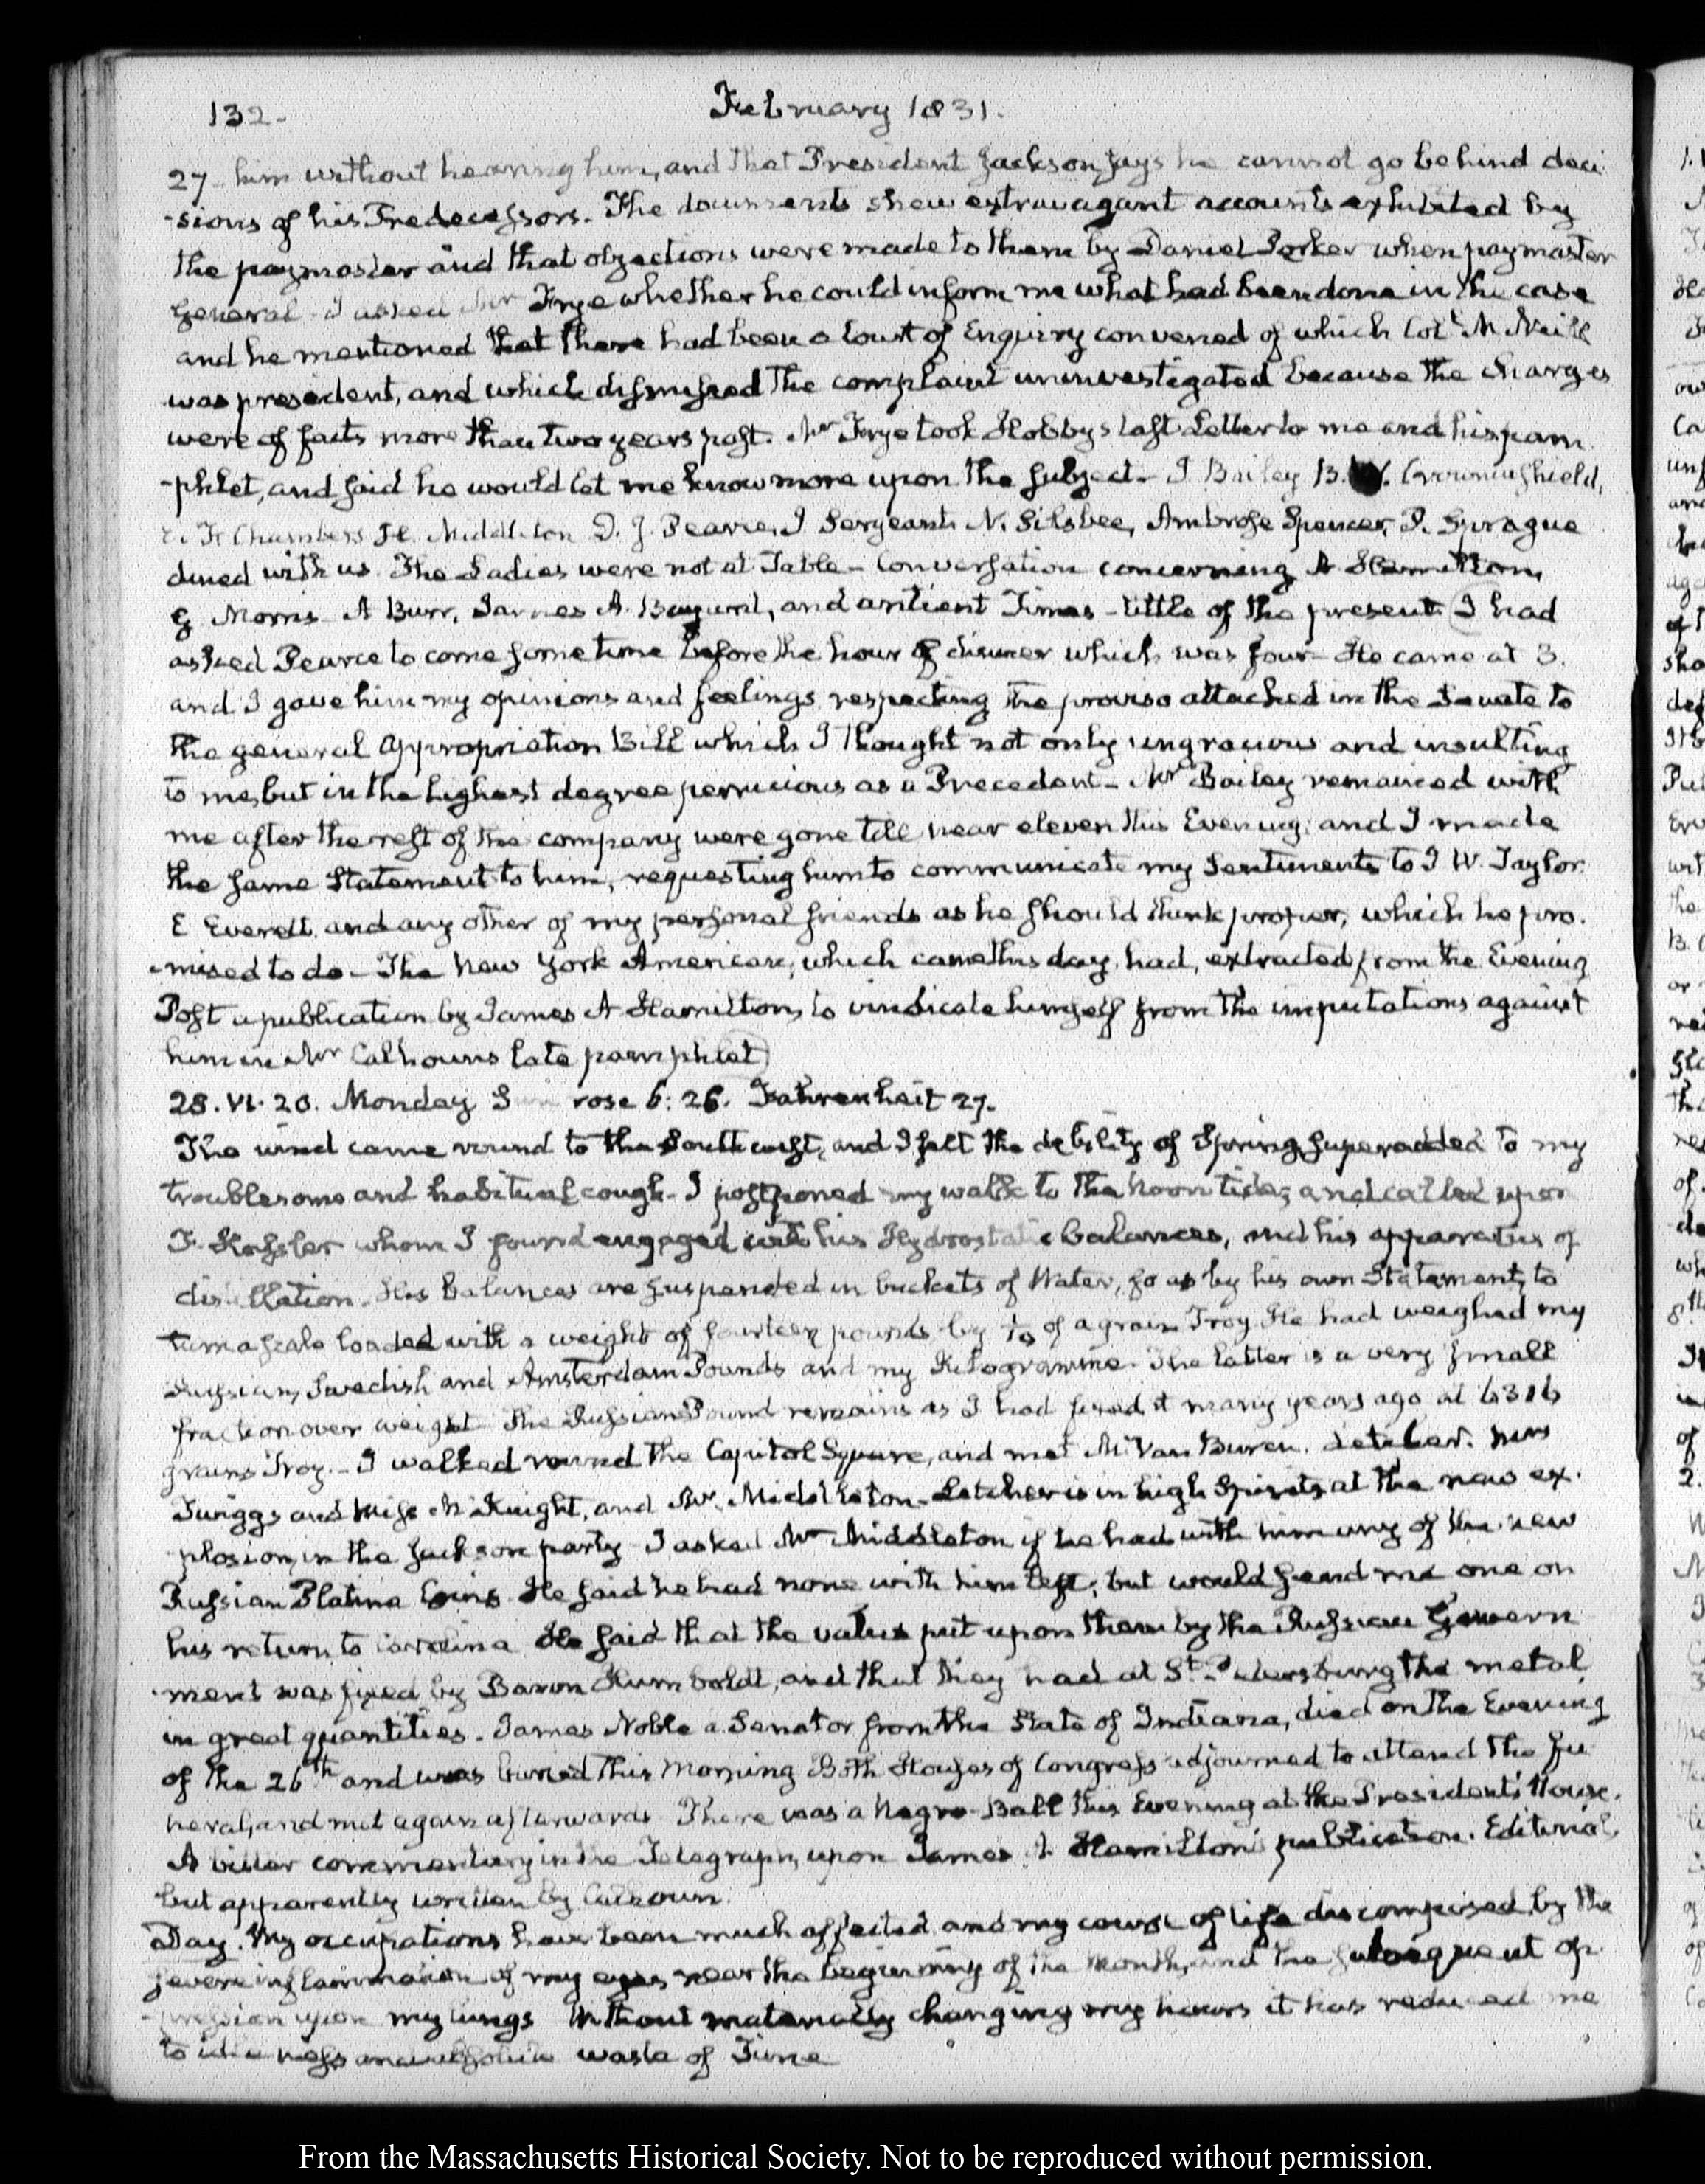 132. February 1831.
27 him without hearing him, and that President Jackson says he cannot go behind deci
-sions of his Predecessors. The documents shew extravagant accounts exhibited by
the paymaster and that objections were made to them by Daniel Parker when paymaster
General - I asked Mr Frye whether he could inform me what had been done in the case
and he mentioned that there had been a Court of Enquiry convened of which Colt McNeill
was president, and which dismissed the complaint uninvestigated because the charges
were of facts more than two years past. Mr Frye took Hobby's last Letter to me and his pam
-phlet, and said he would let me know more upon the subject - J Bailey B. W. Crowninshield,
E. F. Chambers H. Middleton D. J. Pearce, J Sergeant, N. Silsbee, Ambrose Spencer, P. Sprague
dined with us. The Ladies were not at Table - Conversation concerning A Hamilton,
G Morris A Burr, James A. Bayard, and antient Times - little of the present (I had
asked Pearce to come some time before the hour of dinner which was four - He came at 3.
and I gave him my opinions and feelings respecting the proviso attached in the Senate to
the general Appropriation Bill which I thought not only ungracious and insulting
to me, but in the highest degree pernicious as a Precedent - Mr Bailey remained with
me after the rest of the company were gone till near eleven this Evening: and I made
the same Statement to him, requesting him to communicate my Sentiments to J W. Taylor
E Everett, and any other of my personal friends as he should think proper, which he pro.
-mised to do - The New York American, which came this day, had, extracted from the Evening
Post a publication by James A Hamilton, to vindicate himself from the imputations against
him in Mr Calhouns late pamphlet)
28. VI. 20. Monday Sun rose 6: 26. Fahrenheit 27.
The wind came round to the Southwest, and I felt the debility of Spring superadded to my
troublesome and habitual cough - I postponed my walk to the noon tide, and called upon
F. Hassler whom I found engaged with his Hydrostatic balances, and his apparatus of
distillation. His balances are suspended in buckets of Water, so as by his own Statement, to
turn a scale loaded with a weight of fourteen pounds by 1/10 of a grain Troy. He had weighed my
Russian, Swedish and Amsterdam Pounds and my Kilogramme. The latter is a very small
fraction over weight The Russian Pound remains as I had fixed it many years ago at 6316
grains Troy. - I walked round the Capitol Square, and met Mr Van Buren. Letcher. Mrs
Twiggs and Miss McKnight, and Mr. Middleton - Letcher is in high Spirits at the new ex.
plosion, in the Jackson party - I asked Mr Middleton if he had with him any of the new
Russian Platina Coins. He said he had none with him left; but would send me one on
his return to Carolina He said that the value put upon them by the Russian Govern
-ment was fixed by Baron Humboldt, and that they had at St. Petersburg the metal
in great quantities. James Noble a Senator from the State of Indiana, died on the Evening
of the 26th and was buried this Morning Both Houses of Congress adjourned to attend the fu
neral, and met again afterwards There was a Negro-Ball this Evening at the President's House.
A bitter commentary in the Telegraph, upon James A. Hamilton's publication. Editorial,
but apparently written by Calhoun.
Day. My occupations have been much affected and my course of life discomposed by the
severe inflammation of my eyes near the beginning of the Month, and the subsequent op
-pression upon my lungs Without materially changing my hours it has reduced me
to idleness and absolute waste of Time
From the Massachusetts Historical Society. Not to be reproduced without permission.